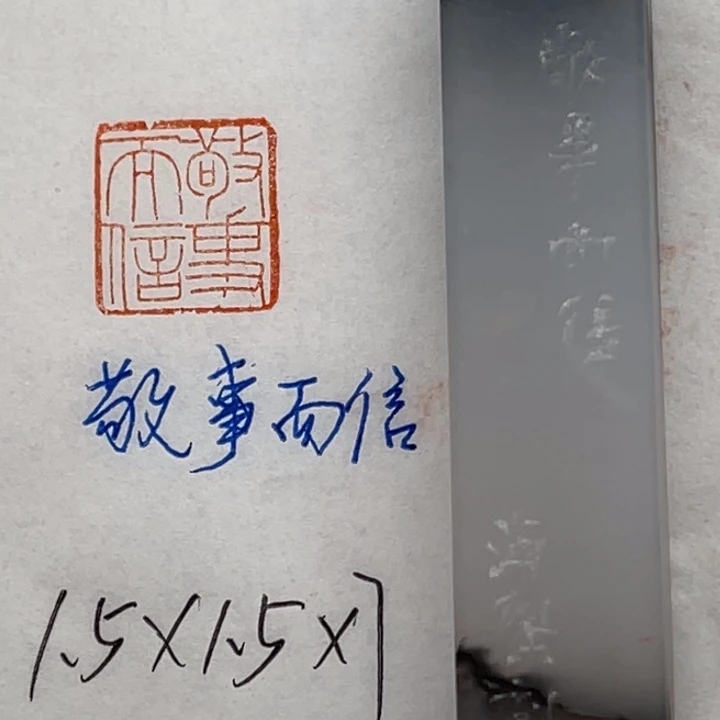 敬事
而信
敬事而信
1.5×1.5×7
敬事而信